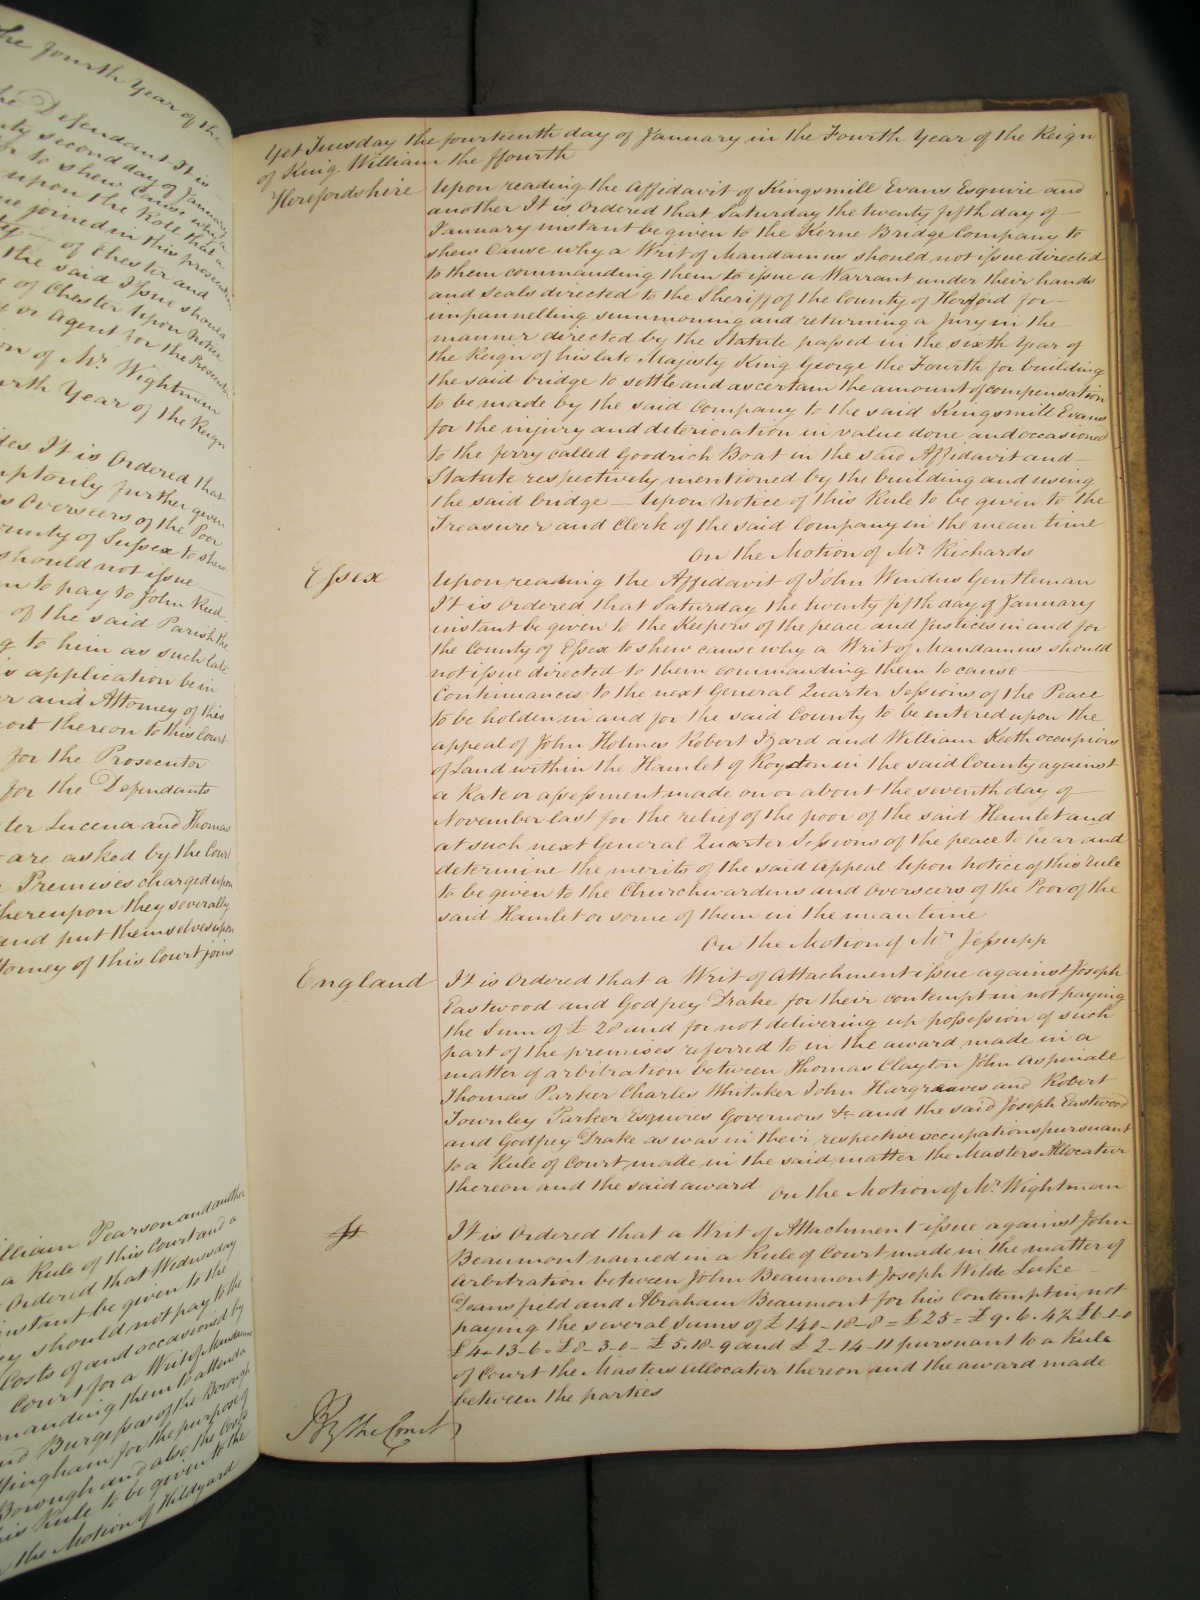 the fourth Year of the
the Defendant It is
nty second day of January
r to shew Cause why a
upon the Roll that a
ue joined in this prosecution
ty — of Chester and
the said Issue should
of Chester Upon Notice
or Agent for the Prosecutor
on of Mr. Wightman
urth Year of the Reign
des It is Ordered that
mptorily further given
Overseers of the Poor
ounty of Sussex to shew
should not issue
m to pay to John Rud
of the said Parish the
g to him as such late
s application be in
er and Attorney of this
ort thereon to this Court
for the Prosecutor
for the Defendants
ter Lucena and Thomas
are asked by the Court
Premises charged upon
thereupon they severally
and put themselves upon
ttorney of this Court joins
illiam Pearson and another
a Rule of this Court and a
Ordered that Wednesday
instant be given to the
ey should not pay to the
Costs of and occasioned by
Court for a Writ of Mandamus
manding them to attend a
nd Burgesses of the Borough
ttingham for the purpose of
Borough and also the Costs
his Rule to be given to the
the Motion of Hildyard
Yet Tuesday the fourteenth day of January in the Fourth Year of the Reign
of King William the ffourth
Herefordshire Upon reading the Affidavit of Kingsmill Evans Esquire and
another It is Ordered that Saturday the twenty fifth day of
January instant be given to the Kerne Bridge Company to
shew Cause why a Writ of Mandamus should not issue directed
to them commanding them to issue a Warrant under their hands
and Seals directed to the Sheriff of the County of Herford for
impannelling summoning and returning a Jury in the
manner directed by the Statute passed in the sixth Year of
the Reign of his late Majesty King George the Fourth for building
the said bridge to settle and ascertain the amount of compensation
to be made by the said Company to the said Kingsmill Evans
for the injury and deterioration in value done and occasioned
to the ferry called Goodrich Boat in the said Affidavit and
Statute respectively mentioned by the building and using
the said bridge — Upon Notice of this Rule to be given to the
Treasurer and Clerk of the said Company in the mean time
On the Motion of Mr. Richards
Essex Upon reading the Affidavit of John Windus Gentleman
It is Ordered that Saturday the twenty fifth day of January
instant be given to the Keepers of the peace and Justices in and for
the County of Essex to shew cause why a Writ of Mandamus should
not issue directed to them commanding them to cause
Continuances to the next General Quarter Sessions of the Peace
to be holden in and for the said County to be entered upon the
appeal of John Holmes Robert Izard and William Keeth occupiers
of Land within the Hamlet of Roydon in the said County against
a Rate or assessment made on or about the seventh day of
November last for the relief of the poor of the said Hamlet and
at such next General Quarter Sessions of the peace to hear and
determine the merits of the said appeal Upon notice of this rule
to be given to the Churchwardens and Overseers of the Poor of the
said Hamlet or some of them in the mean time
On the Motion of Mr. Jessupp
England It is Ordered that a Writ of Attachment issue against Joseph
Eastwood and Godfrey Drake for their contempt in not paying
the Sum of £ 20 and for not delivering up possession of such
part of the premises referred to in the award made in a
matter of arbitration between Thomas Clayton John Aspinall
Thomas Parker Charles Whitaker John Hargreaves and Robert
Townley Parker Esquires Governors &c and the said Joseph Eastwood
and Godfrey Drake as was in their respective occupations pursuant
to a Rule of Court made in the said matter the Masters Allocatur
thereon and the said award On the Motion of Mr. Wightman
It is Ordered that a Writ of Attachment issue against John
Beaumont named in a Rule of Court made in the matter of
arbitration between John Beaumont Joseph Wilde Luke
Deansfield and Abraham Beaumont for his Contempt in not
paying the several Sums of £ 140-18-8 = £25 =
£4-13-6 = £8-3-0 - £5.18-9 and £ 2-14-11 pursuant to a Rule
of Court the Masters Allocatur thereon and the award made
between the parties
By the Court